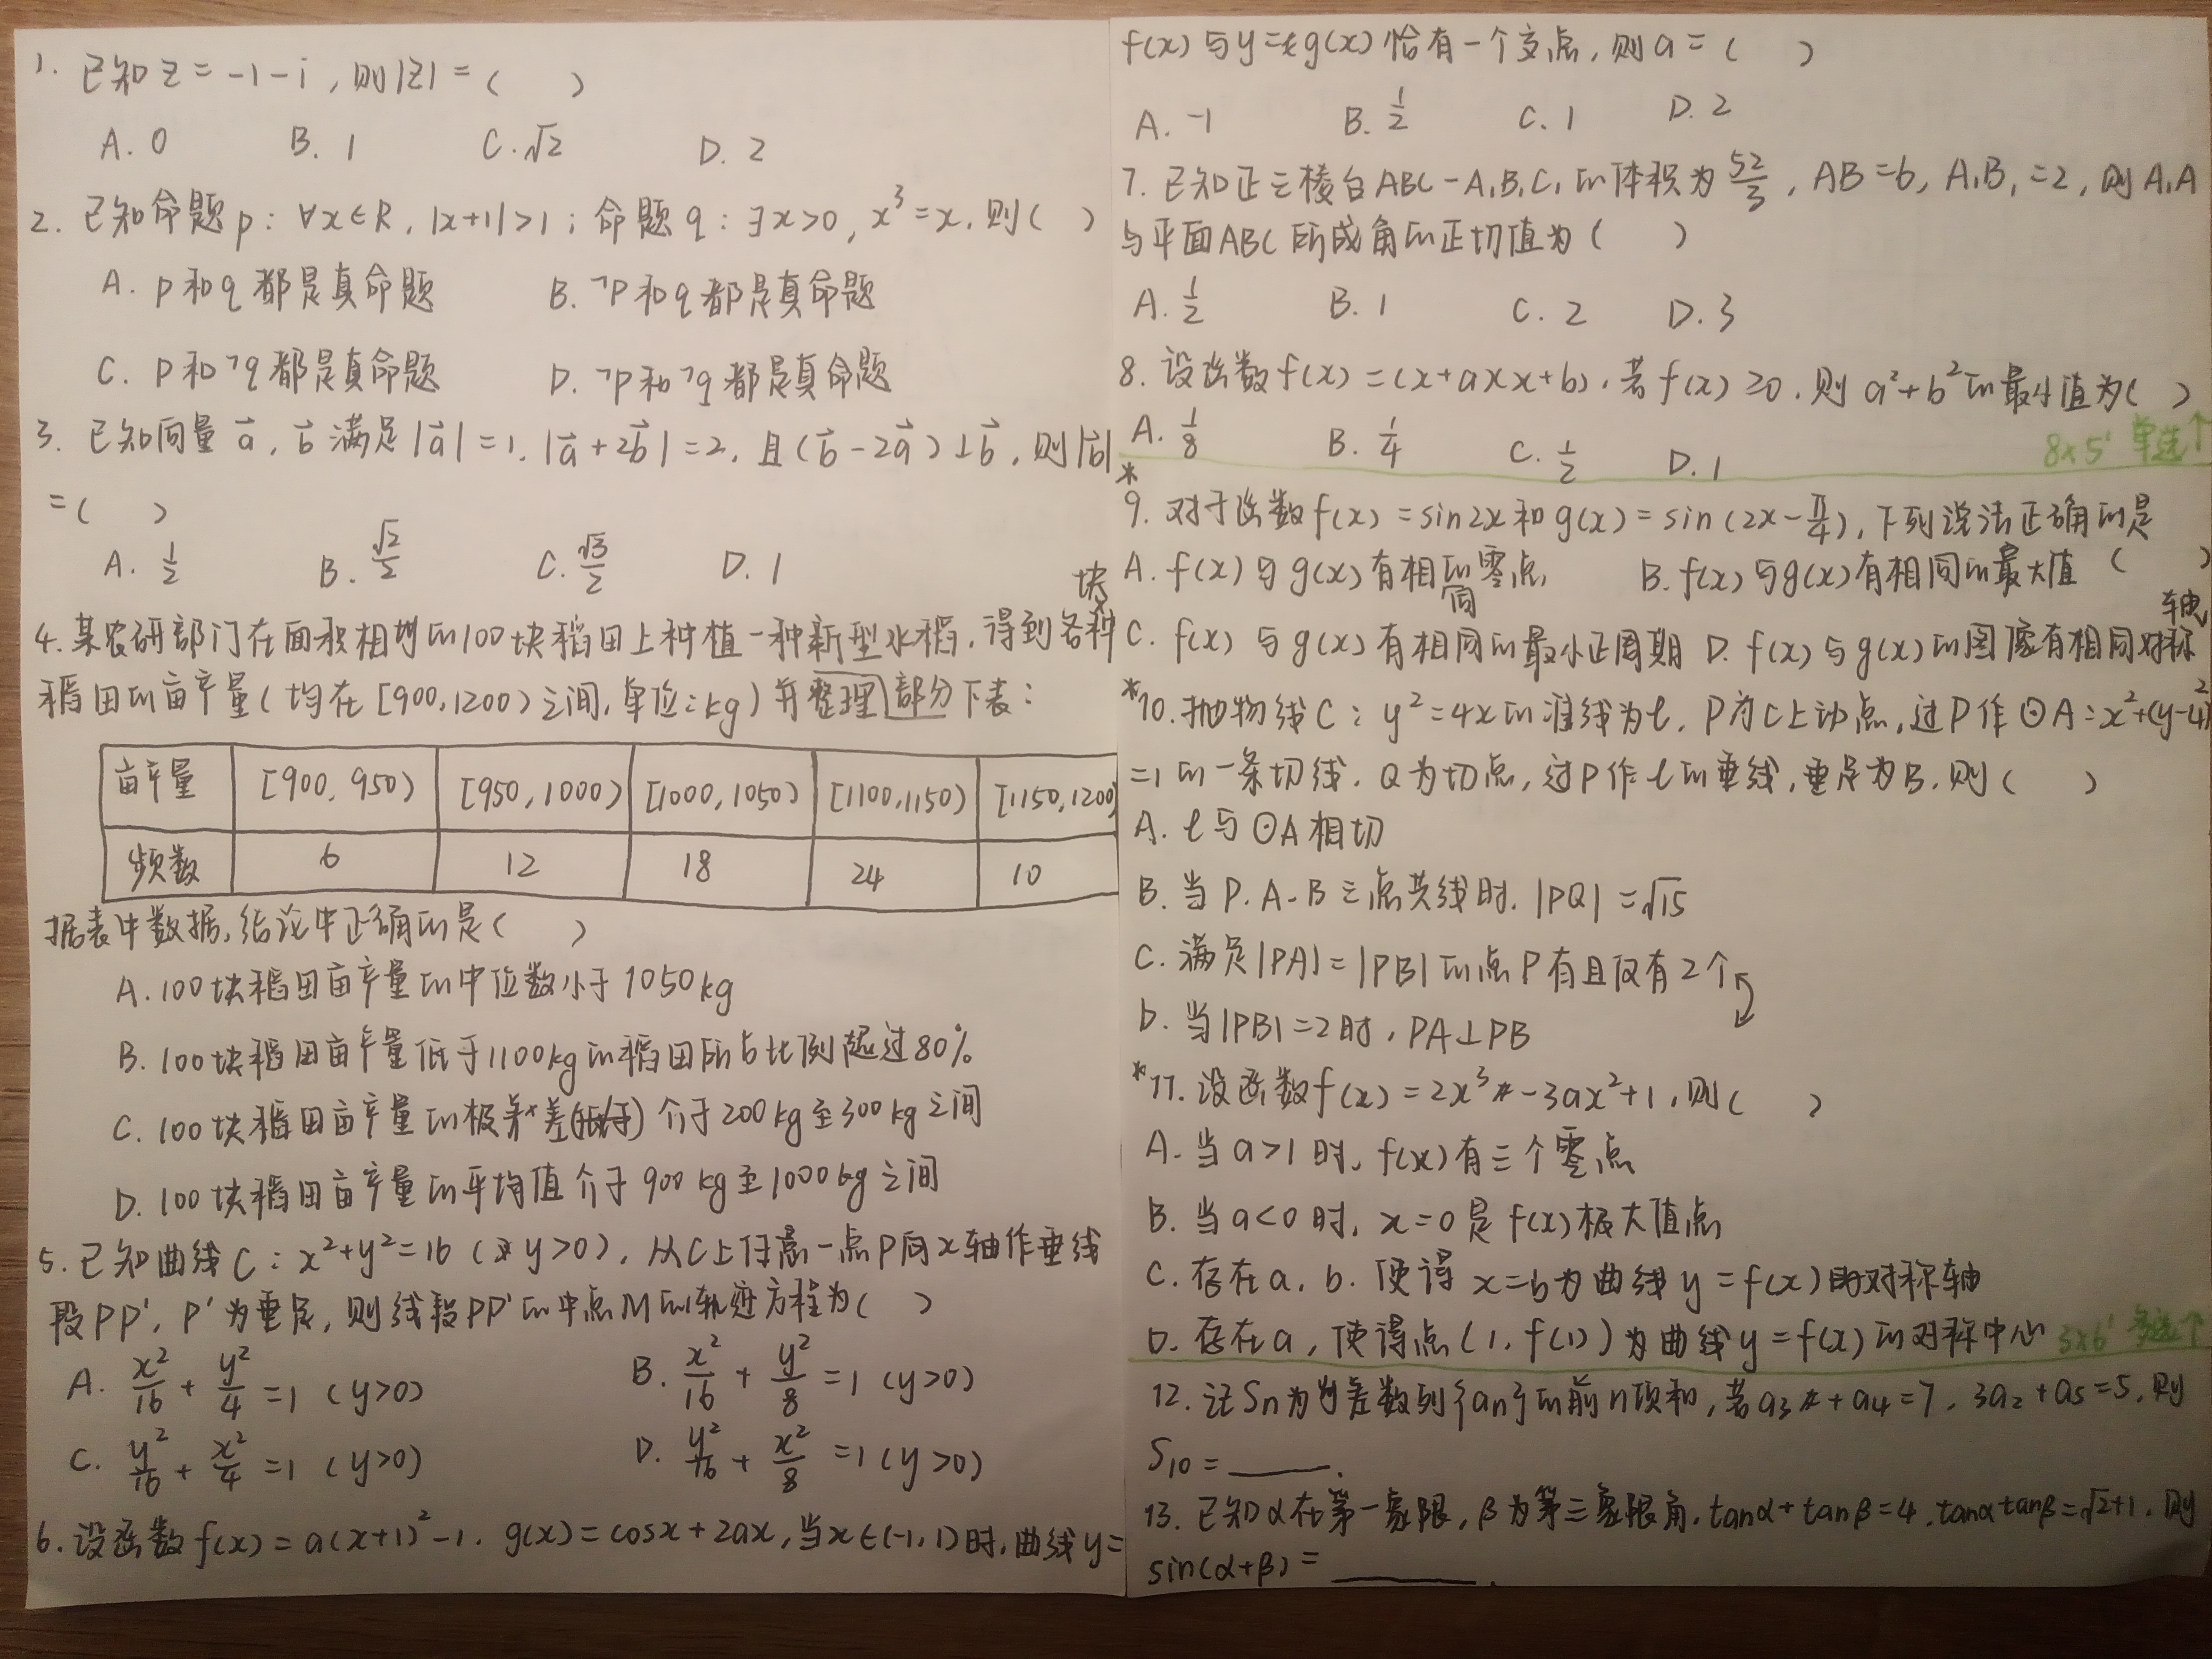 1. 已知z=-1-i,则|z|=( )
A. 0 B. 1 C. √2 D. 2
2. 已知命题p: ∀x∈R, |x+1|>1; 命题q: ∃x>0, x³=x, 则( )
A. p和q都是真命题 B. ¬p和q都是真命题
C. p和¬q都是真命题 D. ¬p和¬q都是真命题
3. 已知向量a⃗, b⃗满足|a⃗|=1, |a⃗+2b⃗|=2, 且(b⃗-2a⃗)⊥b⃗, 则|b⃗|
=( )
A. 1/2 B. √2/2 C. √3/2 D. 1
4. 某农研部门在面积相等的100块稻田上种植一种新型水稻, 得到各块
稻田的亩产量(均在[900,1200)之间,单位:kg)并整理部分下表:
亩产量 [900, 950) [950, 1000) [1000, 1050) [1100,1150) [1150,1200)
频数 6 12 18 24 10
据表中数据,结论中正确的是( )
A. 100块稻田亩产量的中位数小于1050kg
B. 100块稻田亩产量低于1100kg的稻田所占比例超过80%
C. 100块稻田亩产量的极差介于200kg至300kg之间
D. 100块稻田亩产量的平均值介于900kg至1000kg之间
5. 已知曲线C: x²+y²=16 (y>0), 从C上任意一点P向x轴作垂线
段PP', P'为垂足, 则线段PP'的中点M的轨迹方程为( )
A. x²/16 + y²/4 =1 (y>0) B. x²/16 + y²/8 =1 (y>0)
C. y²/16 + x²/4 =1 (y>0) D. y²/16 + x²/8 =1 (y>0)
6. 设函数f(x)=a(x+1)²-1, g(x)=cosx+2ax,当x∈(-1,1)时,曲线y=
f(x)与y=g(x)恰有一个交点,则a=( )
A. -1 B. 1/2 C. 1 D. 2
7. 已知正三棱台ABC-A₁B₁C₁的体积为52/3, AB=6, A₁B₁=2, 则A₁A
与平面ABC所成角的正切值为( )
A. 1/2 B. 1 C. 2 D. 3
8. 设函数f(x)=(x+a)(x+b), 若f(x)≥0, 则a²+b²的最小值为( )
A. 1/8 B. 1/4 C. 1/2 D. 1 8×5' 单选↑
*9. 对于函数f(x)=sin2x和g(x)=sin(2x-π/4), 下列说法正确的是
A. f(x)与g(x)有相同的零点 B. f(x)与g(x)有相同的最大值 ( )
C. f(x)与g(x)有相同的最小正周期 D. f(x)与g(x)的图像有相同对称轴
*10. 抛物线C: y²=4x的准线为l, P为C上动点,过P作⊙A: x²+(y-4)²
=1的一条切线, Q为切点, 过P作l的垂线,垂足为B, 则( )
A. l与⊙A相切
B. 当P、A、B三点共线时, |PQ|=√15
C. 满足|PA|=|PB|的点P有且仅有2个
D. 当|PB|=2时, PA⊥PB
*11. 设函数f(x)=2x³-3ax²+1, 则( )
A. 当a>1时, f(x)有三个零点
B. 当a<0时, x=0是f(x)极大值点
C. 存在a, b, 使得x=b为曲线y=f(x)的对称轴
D. 存在a, 使得点(1, f(1))为曲线y=f(x)的对称中心 3×6' 多选↑
12. 记Sn为等差数列{an}的前n项和,若a₃+a₄=7, 3a₂+a₅=5, 则
S₁₀=____.
13. 已知α在第一象限, β为第三象限角, tanα+tanβ=4, tanαtanβ=√2+1, 则
sin(α+β)=____.